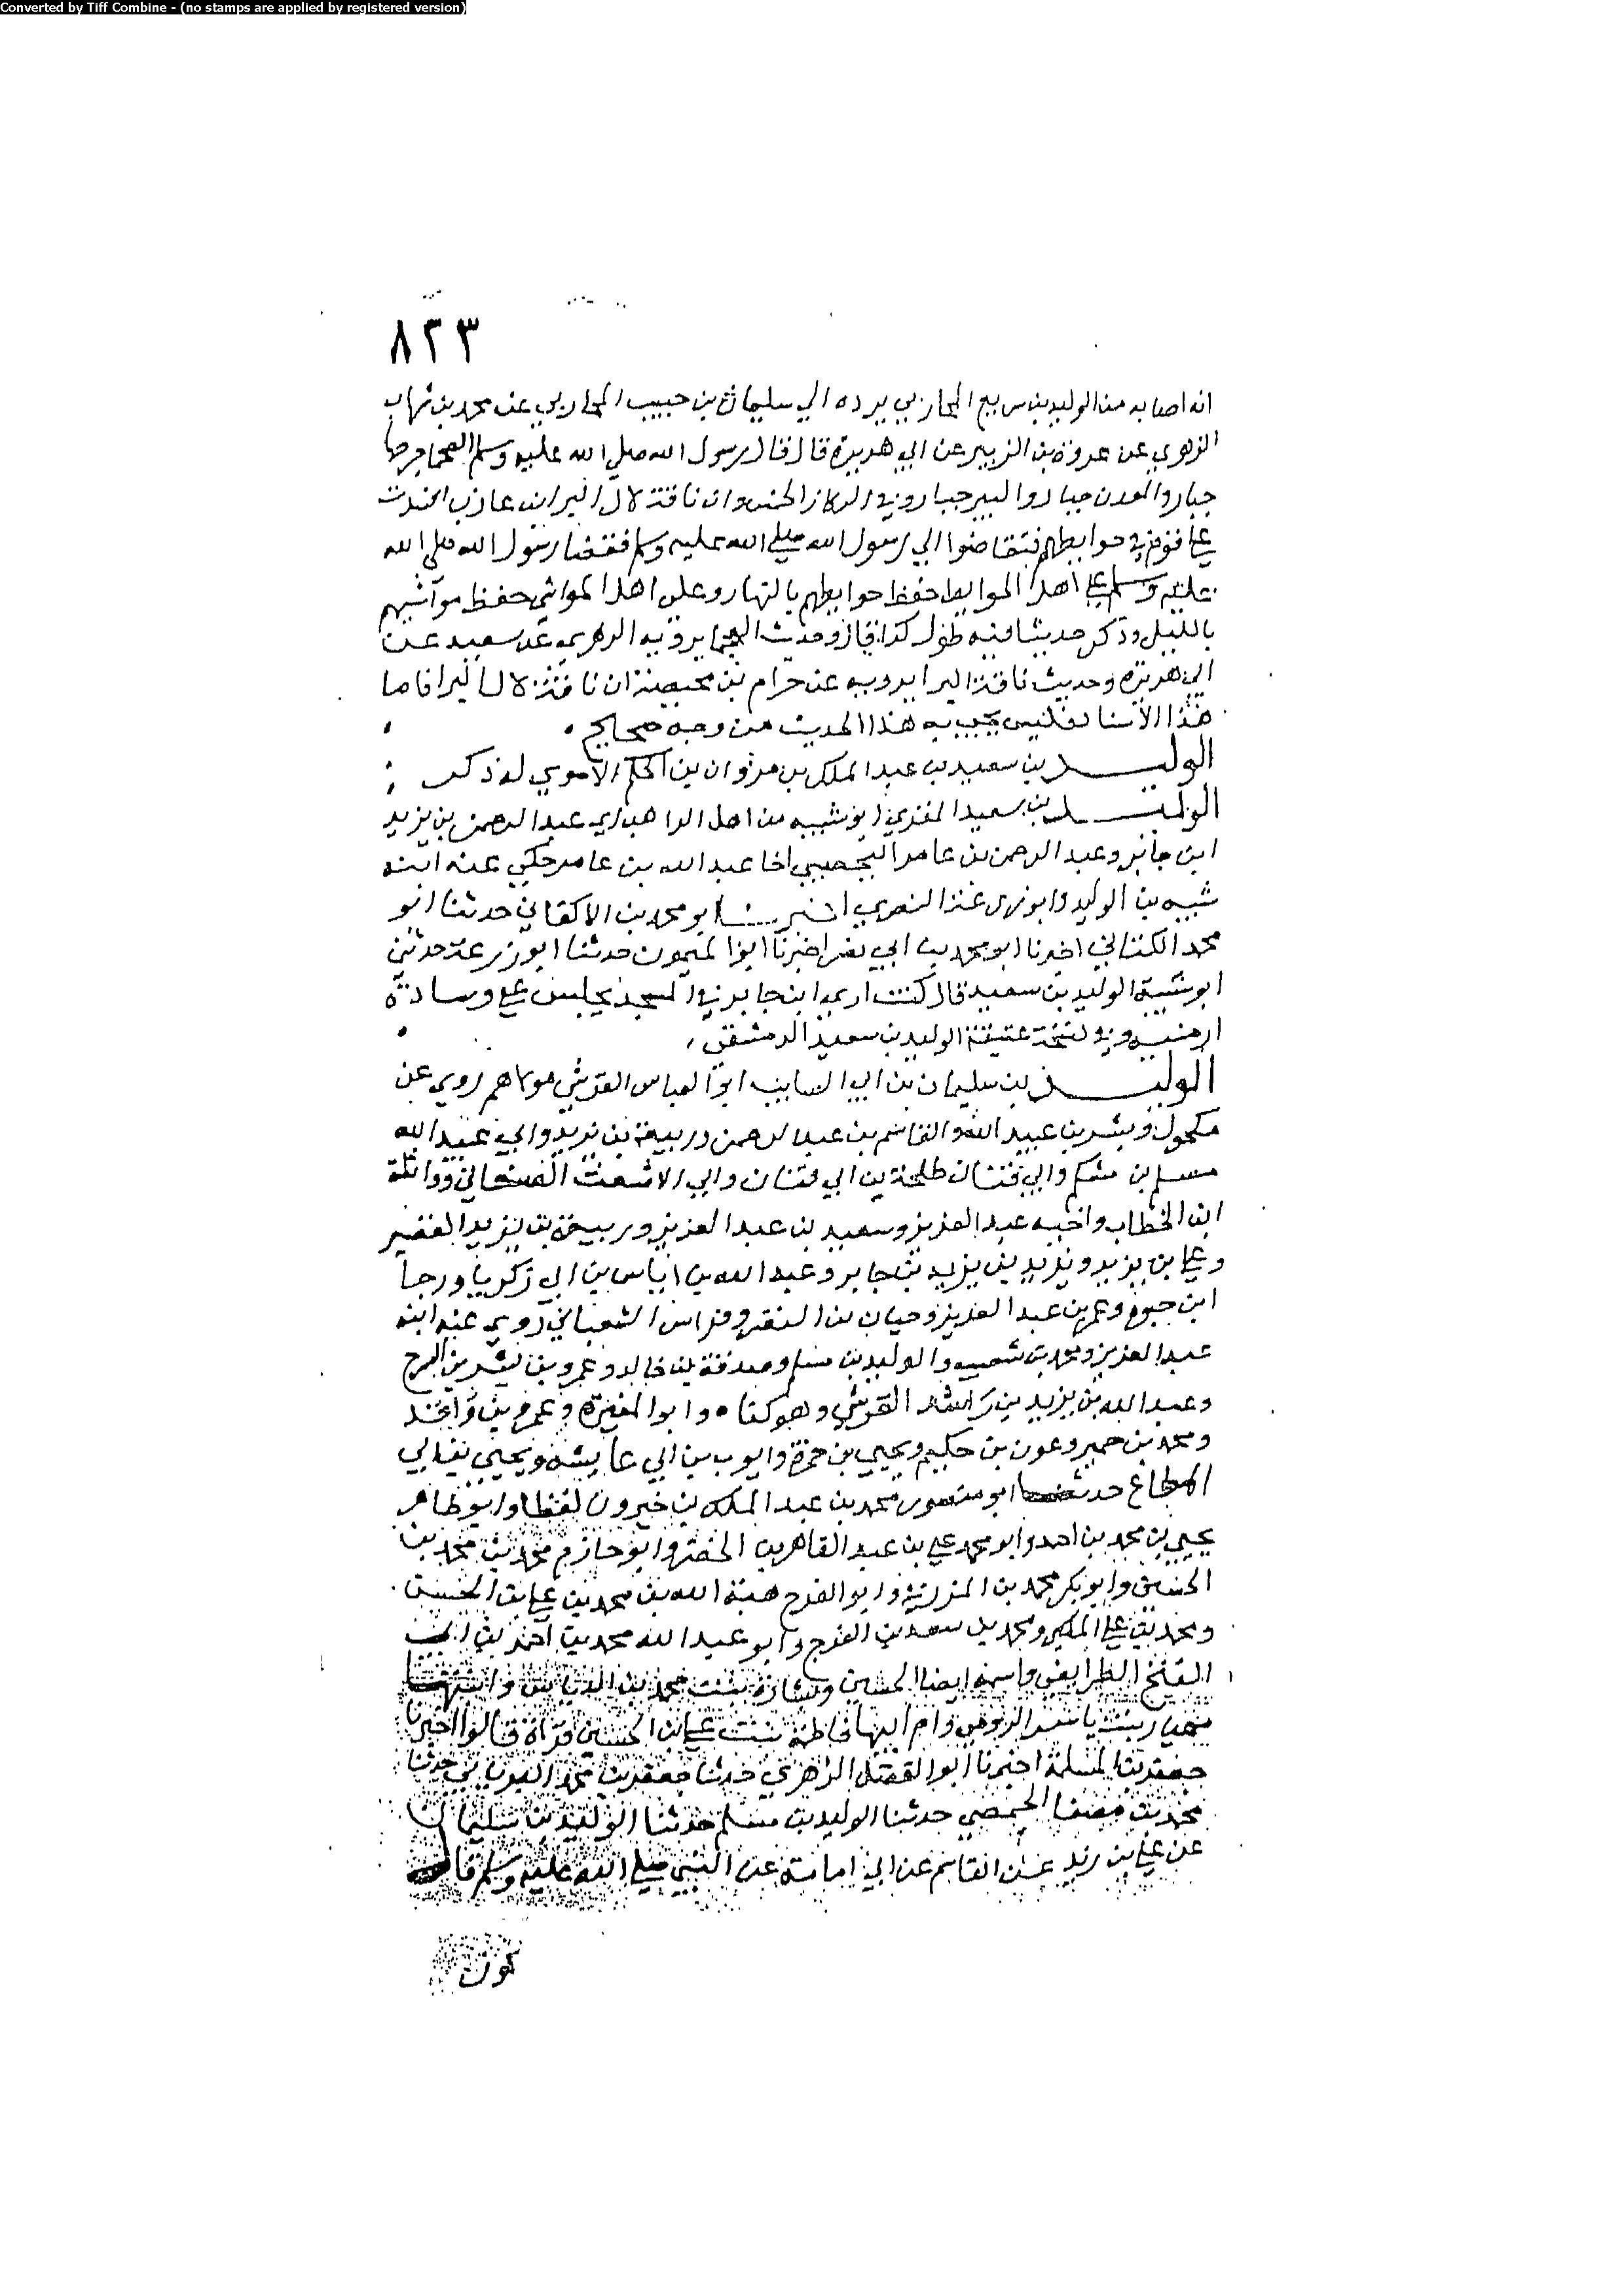 Converted by Tiff Combine - (no stamps are applied by registered version)
٨٢٣
انه اصابه من الوليد بن سريع المحاربي يرده الي سليمان بن حبيب المحاربي عن محمد بن شهاب
الزهري عن عروة بن الزبير عن ابي هريرة قال قال رسول الله صلي الله عليه وسلم العجما جرحها
جبار والمعدن جبار والبير جبار وفي الركاز الخمس وان ناقة لال البرا بن عازب افسدت
علي قوم في حوايطهم فتقاضوا الي رسول الله صلي الله عليه وسلم فقضا رسول الله صلي الله
عليه وسلم علي اهل الحوايط حفظ حوايطهم بالنهار وعلي اهل المواشي حفظ مواشيهم
بالليل وذكر حديثا فيه طول كذا قال وحديث العجما يرويه الزهري عن سعيد عن
ابي هريرة وحديث ناقة البرا يرويه عن حرام بن محيصة ان ناقة لال البرا فاما
هذا الاسناد فليس يجي به هذا الحديث من وجه صحيح
الوليد بن سعيد بن عبد الملك بن مروان بن الحكم الاموي له ذكر
الوليد بن سعيد ابو شيبه من اهل الراهب راي عبد الرحمن بن يزيد
ابن جابر وعبد الرحمن بن عامر اليحصبي اخا عبد الله بن عامر حكي عنه ابنه
شيبه بن الوليد وابو زرعة النصري اخبرنا ابو محمد بن الاكفاني حدثنا ابو
محمد الكتاني اخبرنا ابو محمد بن ابي نصر اخبرنا ابو الميمون حدثنا ابو زرعة حدثني
ابو شيبة الوليد بن سعيد قال كنت اري ابن جابر في المسجد يجلس علي وسادة
ارمنيه وفي نسخة عتيقة الوليد بن سعيد الدمشقي
الوليد بن سليمان بن ابي السايب ابو العباس القرشي مولاهم روي عن
مكحول وبشر بن عبيد الله والقاسم بن عبد الرحمن وربيعة بن يزيد وابي عبيد الله
مسلم بن مشكم وابي قنان طلحة بن ابي قنان وابي الاشعث الصنعاني وواثلة
ابن الخطاب واخيه عبد العزيز وسعيد بن عبد العزيز وربيعة بن يزيد القصير
وعلي بن يزيد ويزيد بن يزيد بن جابر وعبد الله بن اياس بن ابي زكريا ورجا
ابن حيوة وعمر بن عبد العزيز وحيان بن النضر وفراس الشعباني روي عنه ابنه
عبد العزيز ومحمد بن شعيب والوليد بن مسلم وصدقة بن خالد وعمرو بن بشر بن السرح
وعبد الله بن يزيد بن راشد القرشي وهو كناه وابو المغيرة وعمرو بن واقد
ومحمد بن حمير وعون بن حكيم ويحيي بن حمزة وايوب بن ابي عايشة ويحيي بن ابي
المطاع حدثنا ابو منصور محمد بن عبد الملك بن خيرون لفظا وابو طاهر
يحيي بن محمد بن احمد وابو محمد علي بن عبد القاهر بن الخضر وابو حازم محمد بن محمد بن
الحسين وابو بكر محمد بن المزرفي وابو الفرج هبة الله بن محمد بن علي بن الحسين
ومحمد بن علي المكبر ومحمد بن سعد بن الفرج وابو عبد الله محمد بن احمد بن ابي
الفتح الطرايفي واسمه ايضا الحسين وبشارة بنت محمد بن الدباس وابنتها
مهيار بنت يانس الرومي وام ابيها فاطمة بنت علي بن الحسين قراة قالوا اخبرنا
جعفر بن المسلمة اخبرنا ابو الفضل الزهري حدثنا جعفر بن محمد الفريابي حدثنا
محمد بن مصفا الحمصي حدثنا الوليد بن مسلم حدثنا الوليد بن سليمان
عن علي بن يزيد عن القاسم عن ابي امامة عن النبي صلي الله عليه وسلم قال
تكون